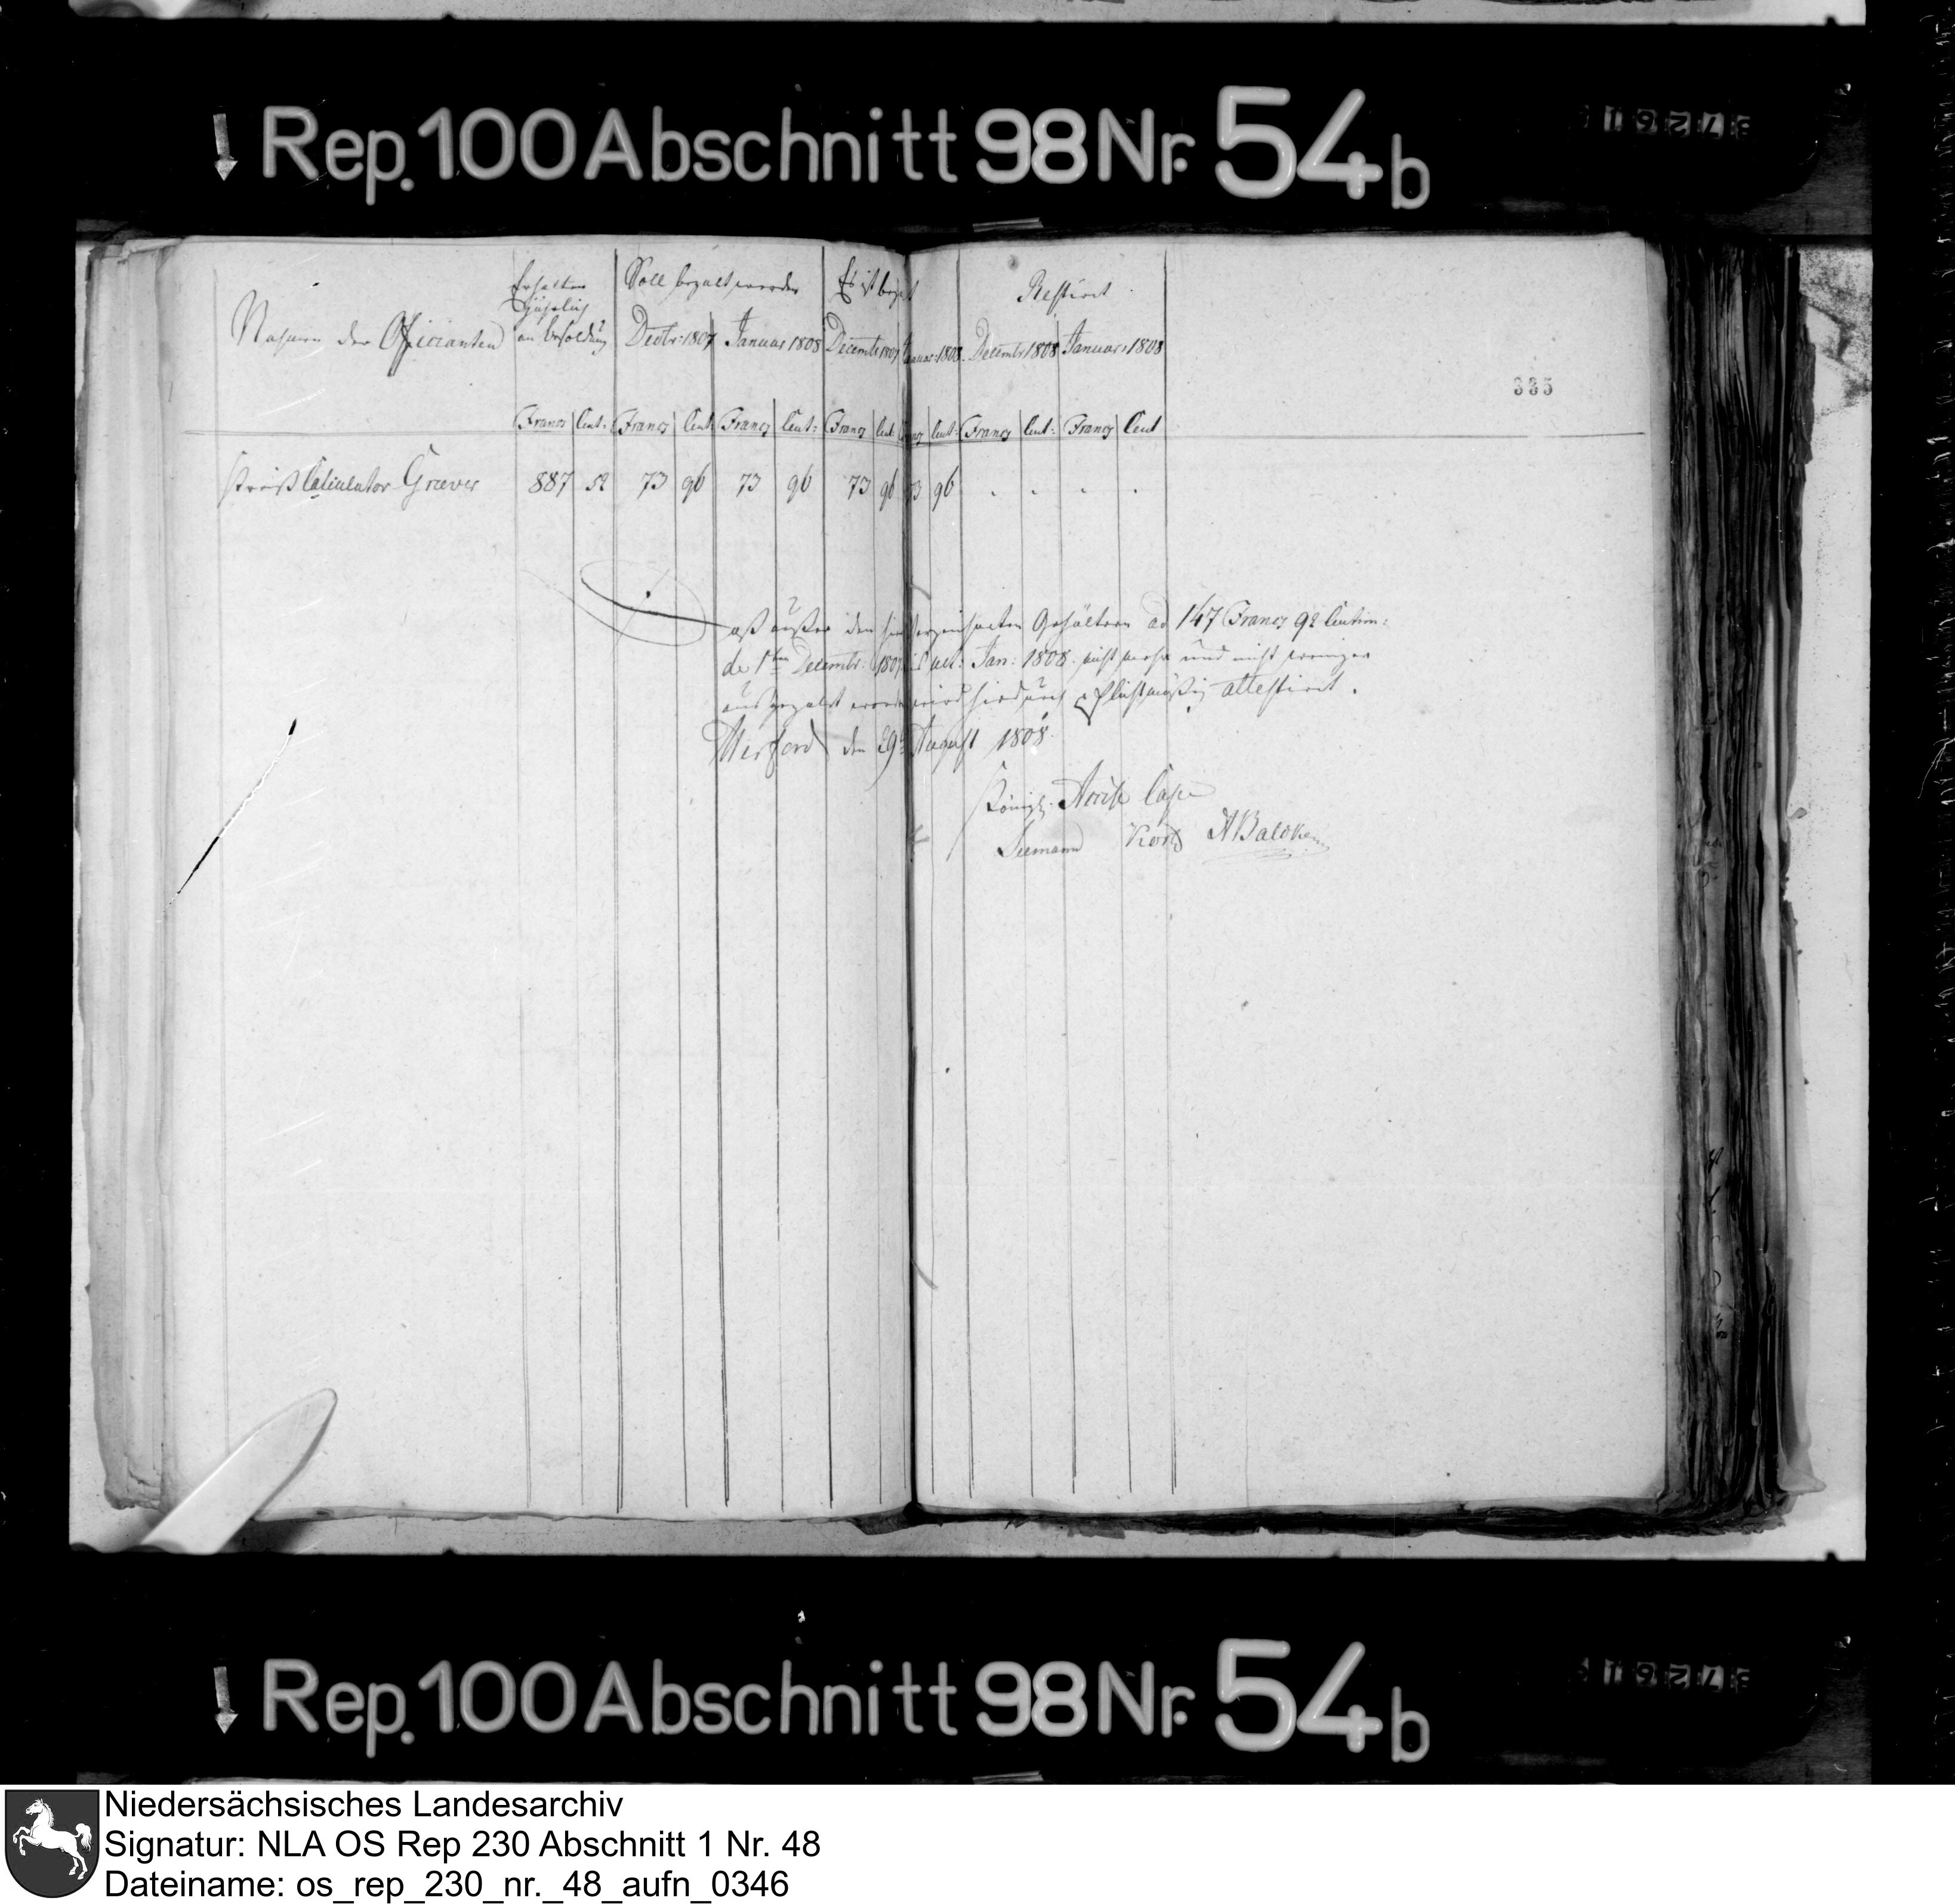 Rep. 100 Abschnitt 98 Nr. 54b
Nahmen der Officianten
Erhalten
jährlich
an besoldung
Soll bezalt werden
Es ist bezalt
Restirt
Decbr: 1807 Januar 1808 Decembr 1807 Januar: 1808. Decembr 1808 Januar: 1808
335
Francs Cent: Francs Cent Francs Cent: Francs Cent Francs Cent: Francs Cent: Francs Cent
Calculator Graever 887 52 73 96 73 96 73 96 73 96 . . . .
Daß außer den hier verzeichneten Gehältern ad 147 Francs 92 Centim:
de 1ten Decembr: 1807 Jan: 1808. nicht mehr und nicht weniger
ausgezalt worden wird hierdurch pflichtmäßig attestirt.
Herford den 29t August 1808.
Königl. Accise Casse
Seemann
Rep. 100 Abschnitt 98 Nr. 54b
Niedersächsisches Landesarchiv
Signatur: NLA OS Rep 230 Abschnitt 1 Nr. 48
Dateiname: os_rep_230_nr._48_aufn_0346